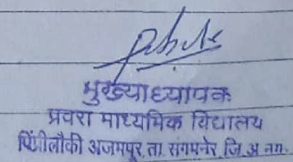 मुख्याध्यापक
प्रवरा माध्यमिक विद्यालय
पिंप्रीलौकी अजमपूर, ता. संगमनेर, जि.अ.नगर.